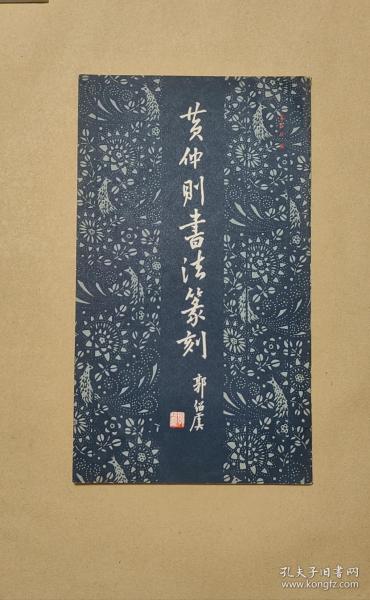 黄仲则书法篆刻
郭绍虞
孔夫子旧书网
www.kongfz.com